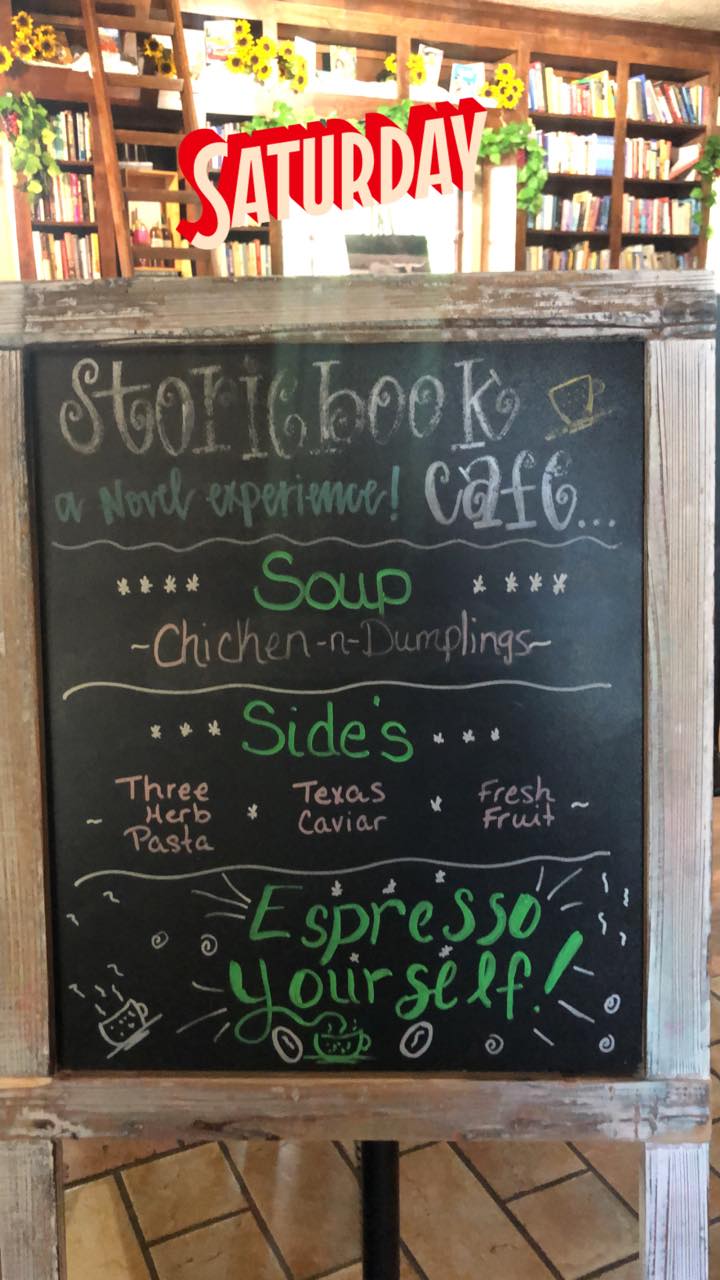 SATURDAY
Storiebook
a Novel experience! Cafe...
**** Soup ****
~Chicken-n-Dumplings~
*** Side's ***
~ Three Herb Pasta * Texas Caviar * Fresh Fruit ~
Espresso
yourself!